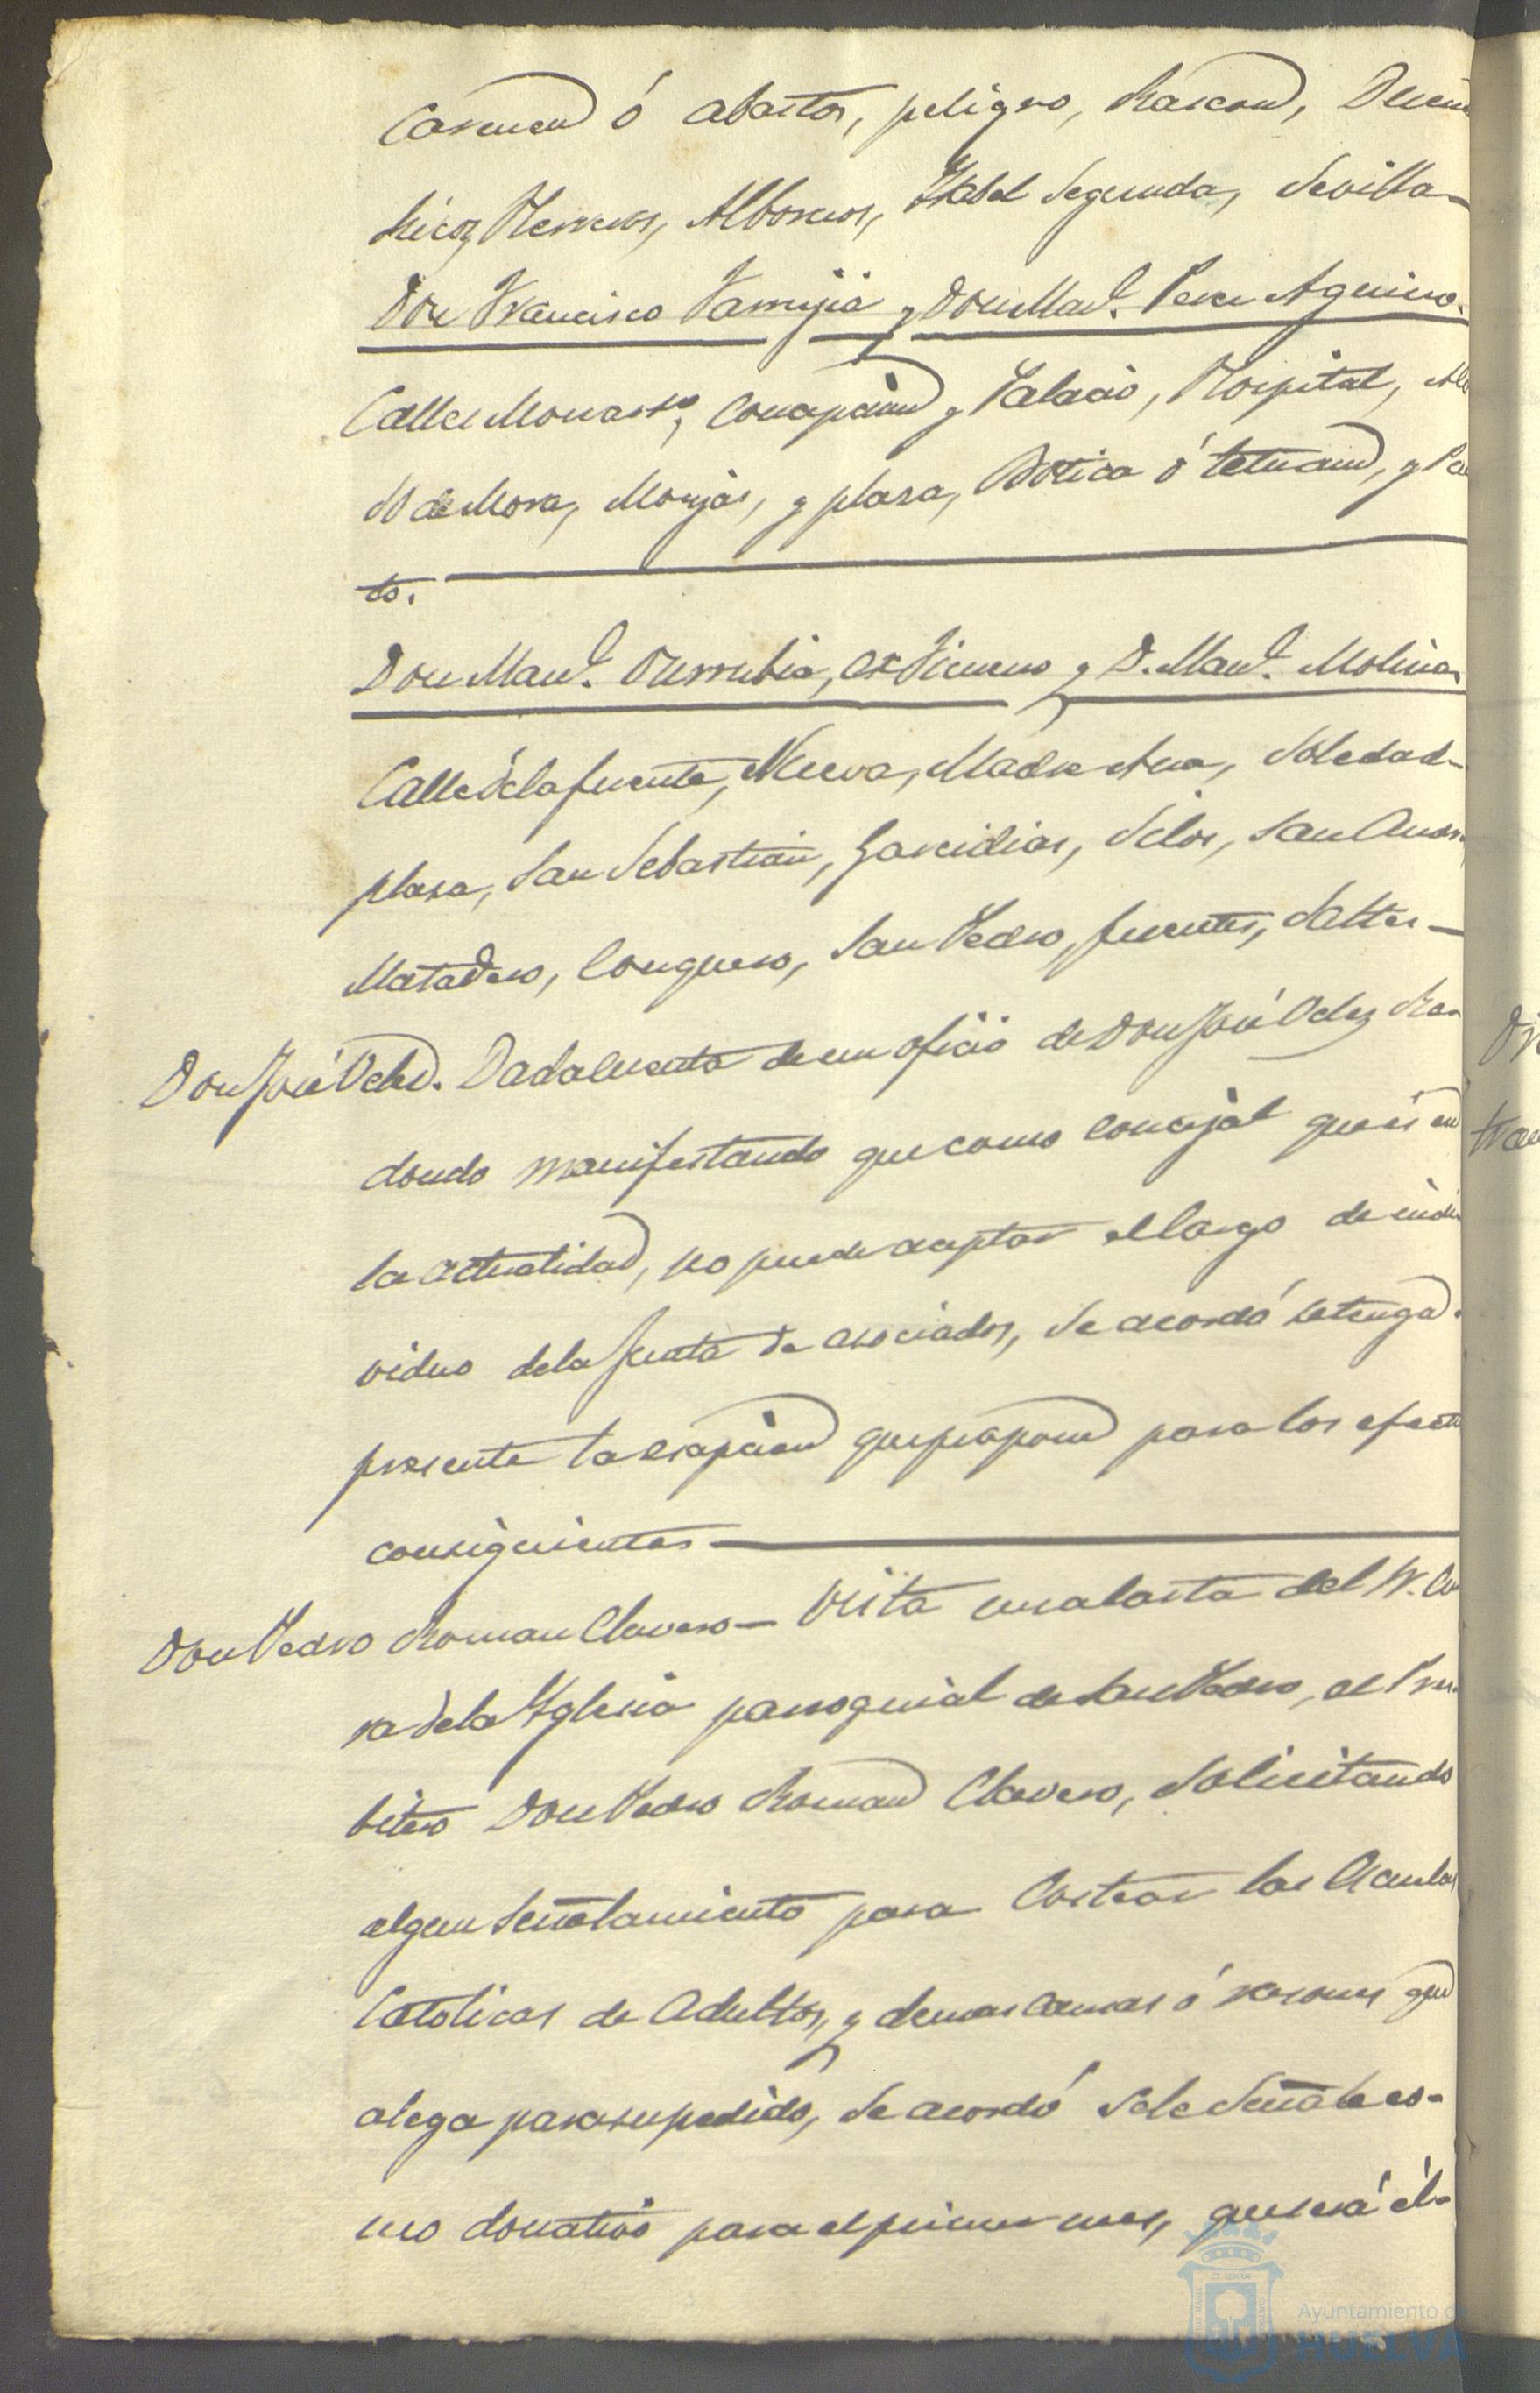 Carmen ó abastos, peligro, Rascon,
Rico, Herreros, Albornos, Ysabel Segunda, Sevilla
Don Francisco Garrujia y Don Man.l Perez Aguirre.
Calle Monasto, Concepcion y Palacio, Hospital,
de Mora, Monjas, y plasa, Botica ó tetuan, y Pa
to.
Don Man.l y D. Man.l Molina
Calle de la fuente, Nueva, Madre Ana, Soledad
plasa, San Sebastian, Garcidias, Silos, San Andr
Matadero, Conquero, San Pedro, fuentes, Saltes
Don José Velez. Dada cuenta de un oficio de Don José Velez Re-
dondo manifestando que como concejal que es en
la actualidad, no puede aceptar el cargo de indi
viduo de la Junta de asociados, se acordó se tenga
presente la escepcion que propone para los efecto
consiguientes
Don Pedro Roman Clavero - Vista una carta del Sr. Cu
ra de la Yglesia parroquial de San Pedro, el Pres-
bitero Don Pedro Roman Clavero, solicitando
algun señalamiento para costear las Escuelas
Catolicas de Adultos, y demas causas ó rasones que
alega para su pedido, se acordó se le señale co-
mo donativo para el primer mes, que será él
Ayuntamiento de
HUELVA